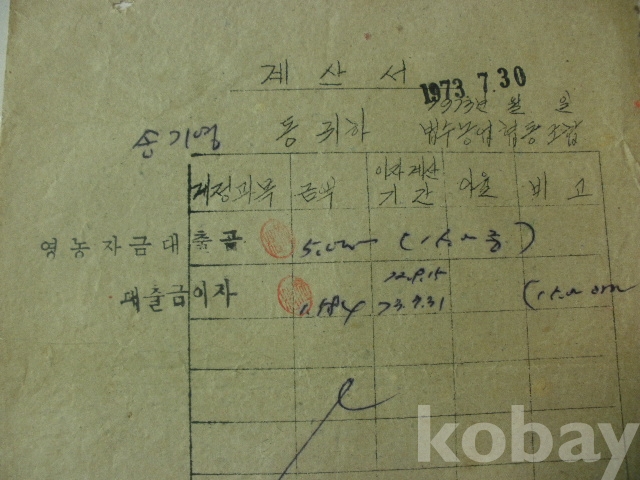 계산서
1973.7.30
1973년 월 일
손기영 동 귀하 법수농업협동조합
계정과목 금액 이자계산기간 이율 비고
영농자금대출금 5,000
대출금이자 1,584 73.7.31
kobay